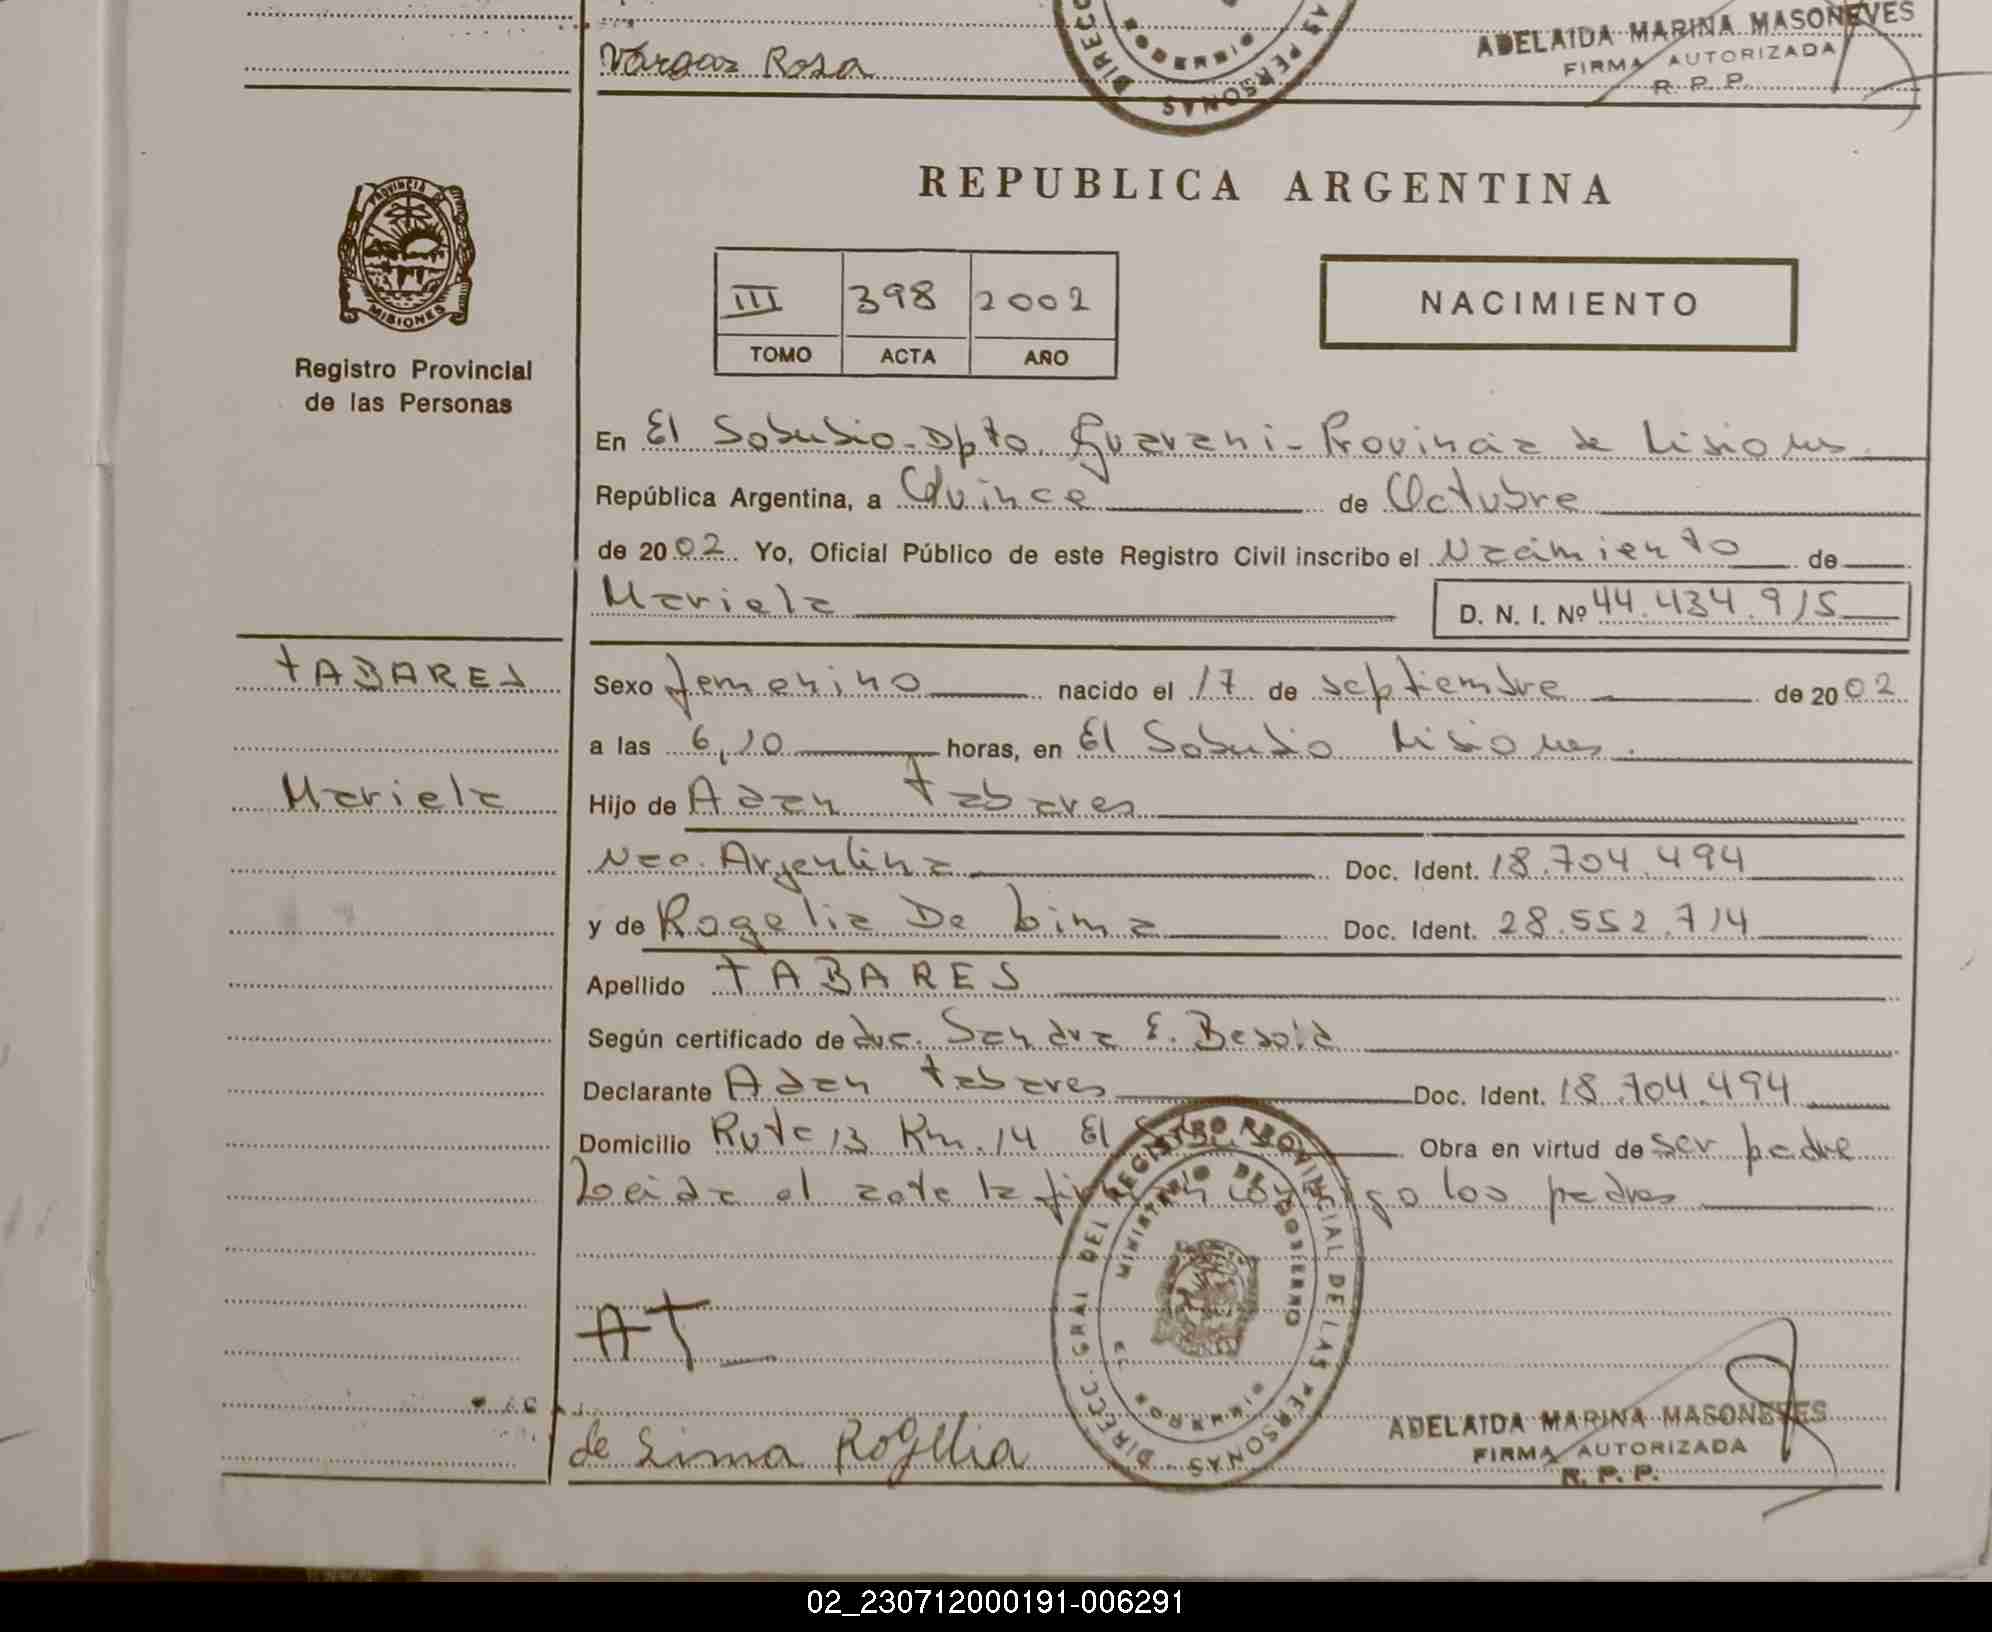 Vargas Rosa
ADELAIDA MARINA MASONEVES
FIRMA AUTORIZADA
R. P. P.
DIRECC PERSONAS
PROVINCIA
MISIONES
Registro Provincial
de las Personas
REPUBLICA ARGENTINA
III 398 2002
TOMO ACTA AÑO
NACIMIENTO
En El Soberbio-Dpto. Guarani-Provincia de Misiones
República Argentina, a Quince de Octubre
de 2002 Yo, Oficial Público de este Registro Civil inscribo el Nacimiento de
Mariela D. N. I. Nº 44.434.915
TABARES
Sexo femenino nacido el 17 de septiembre de 2002
a las 6,10 horas, en El Soberbio Misiones.
Mariela
Hijo de Adan Tabares
Nac. Argentina Doc. Ident. 18.704.494
y de Rogelia De Lima Doc. Ident. 28.552.714
Apellido TABARES
Según certificado de dra. Sandra E.
Declarante Adan Tabares Doc. Ident. 18.704.494
Domicilio Ruta 13 Km. 14 El Obra en virtud de ser padre
Leida el acta la firman conmigo los padres
DIRECC. GRAL DEL REGISTRO PROVINCIAL DE LAS PERSONAS
MINISTERIO DE GOBIERNO
AT
de Lima Rogelia
ADELAIDA MARINA MASONEVES
FIRMA AUTORIZADA
R. P. P.
02_230712000191-006291